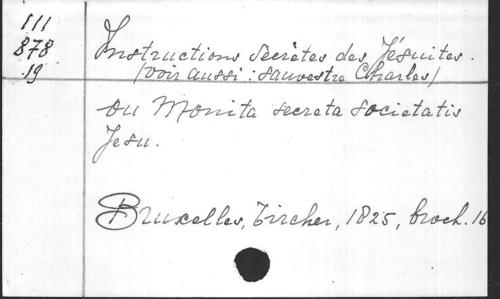 111
878
19
Instructions secrètes des Jésuites.
(voir aussi : Sauvestre Charles)
ou Monita secreta societatis
Jesu.
Bruxelles, Tircher, 1825, broch. 16